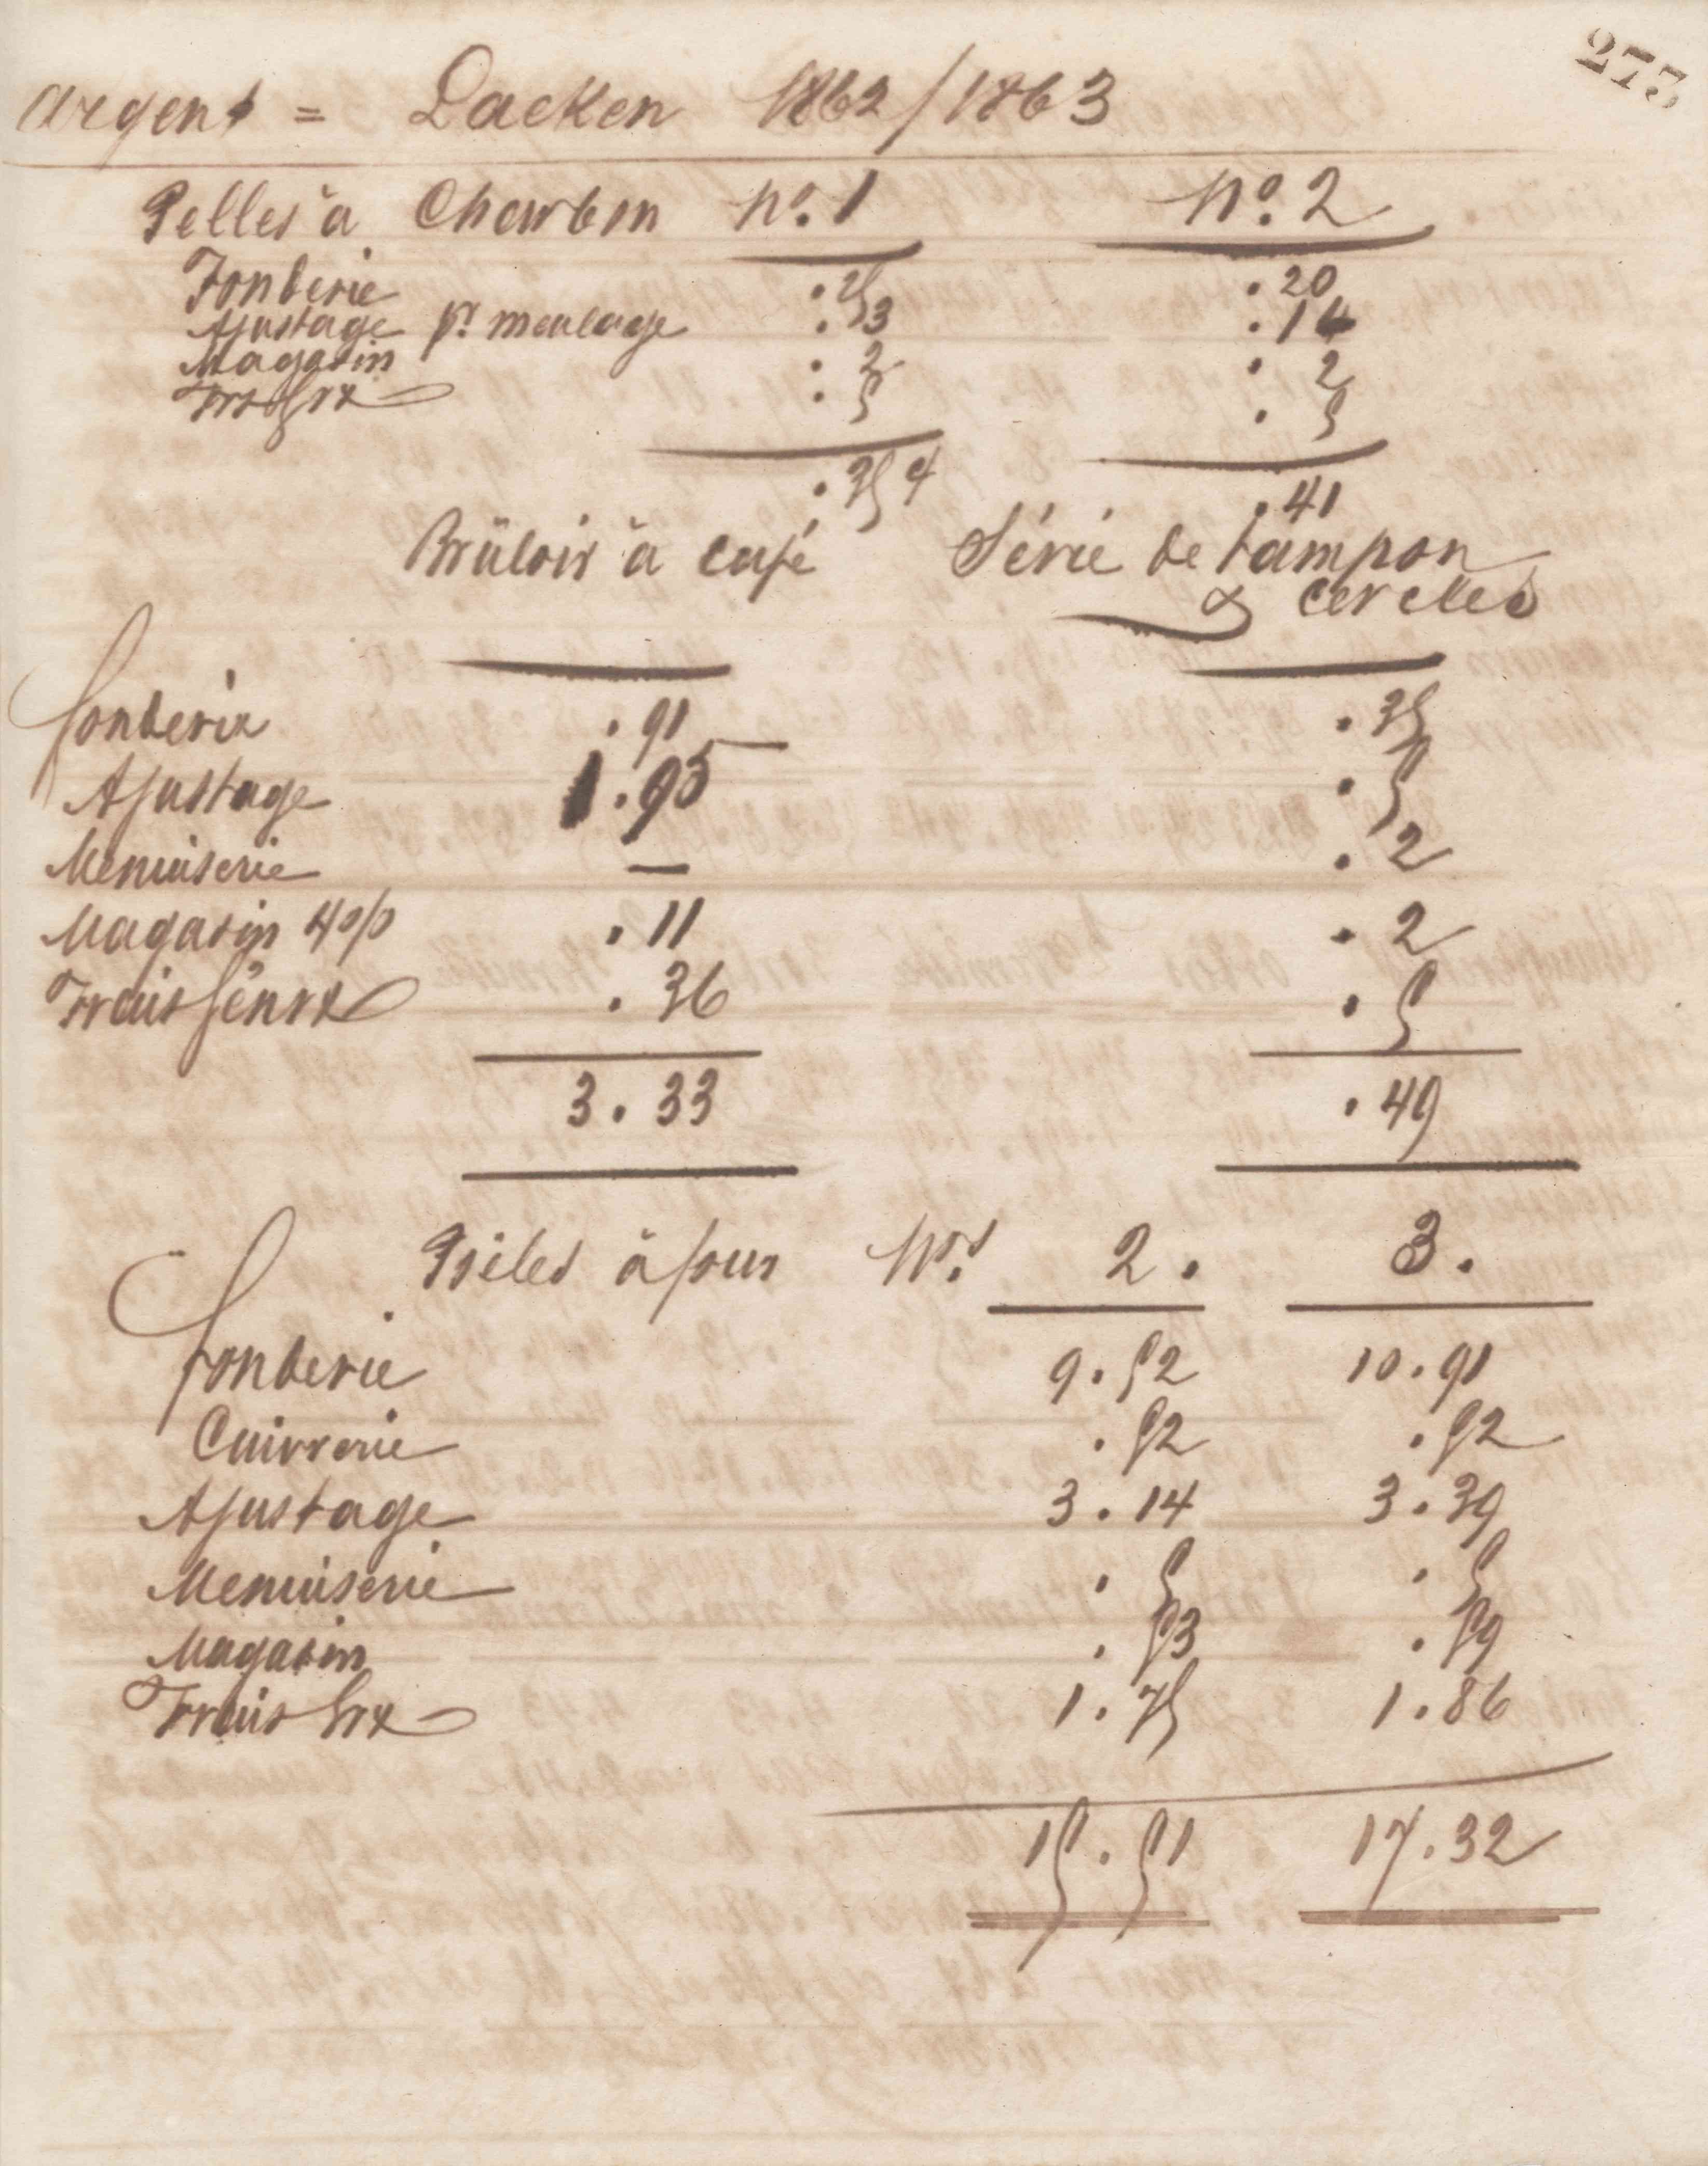 273
argent = Laeken 1862/1863
Pelles à Charbon No. 1 No. 2
Fonderie . 25 . 20
Ajustage pr. meulage . 3 . 14
Magasin . 2 . 2
Frs Grx . 5 . 5
. 35 4 . 41
Brûloir à café Série de tampon
& cercles
fonderie . 91 . 35
Ajustage 1 . 95 . 5
Menuiserie — . 2
Magasin 4 o/o . 11 . 2
Frais Génrx . 36 . 5
3 . 33 . 49
Poëles à four Nos. 2 . 3 .
fonderie 9 . 52 10 . 91
Cuivrerie . 52 . 52
Ajustage 3 . 14 3 . 39
Menuiserie . 5 . 5
Magasin . 53 . 59
Frais Grx 1 . 75 1 . 86
15 . 51 17 . 32